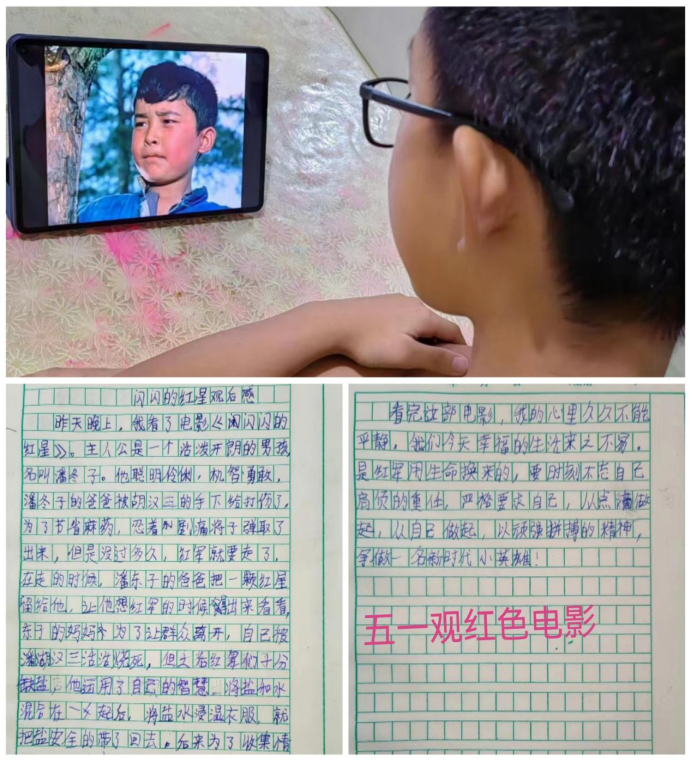 闪闪的红星观后感
昨天晚上，我看了电影《闪闪的
红星》。主人公是一个活泼开朗的男孩
名叫潘冬子。他聪明伶俐，机智勇敢，
潘冬子的爸爸被胡汉三的手下给打伤了，
为了节省麻药，忍着剧痛将子弹取了
出来，但是没过多久，红军就要走了，
在走的时候，潘东子的爸爸把一颗红星
留给他，让他想红军的时候拿出来看看，
东子的妈妈为了让群众离开，自己被
胡汉三活活烧死，但之后红军们十分
缺盐，他运用了自己的智慧，将盐和水
混合在一起后，将盐水浸湿衣服，就
把盐安全的带了回去。后来为了收集情
看完这部电影，我的心里久久不能
平静，我们今天幸福的生活来之不易。
是红军用生命换来的，要时刻不忘自己
肩负的重任，严格要求自己，从点滴做
起，从自己做起，以顽强拼搏的精神，
争做一名新时代小英雄！
五一观红色电影